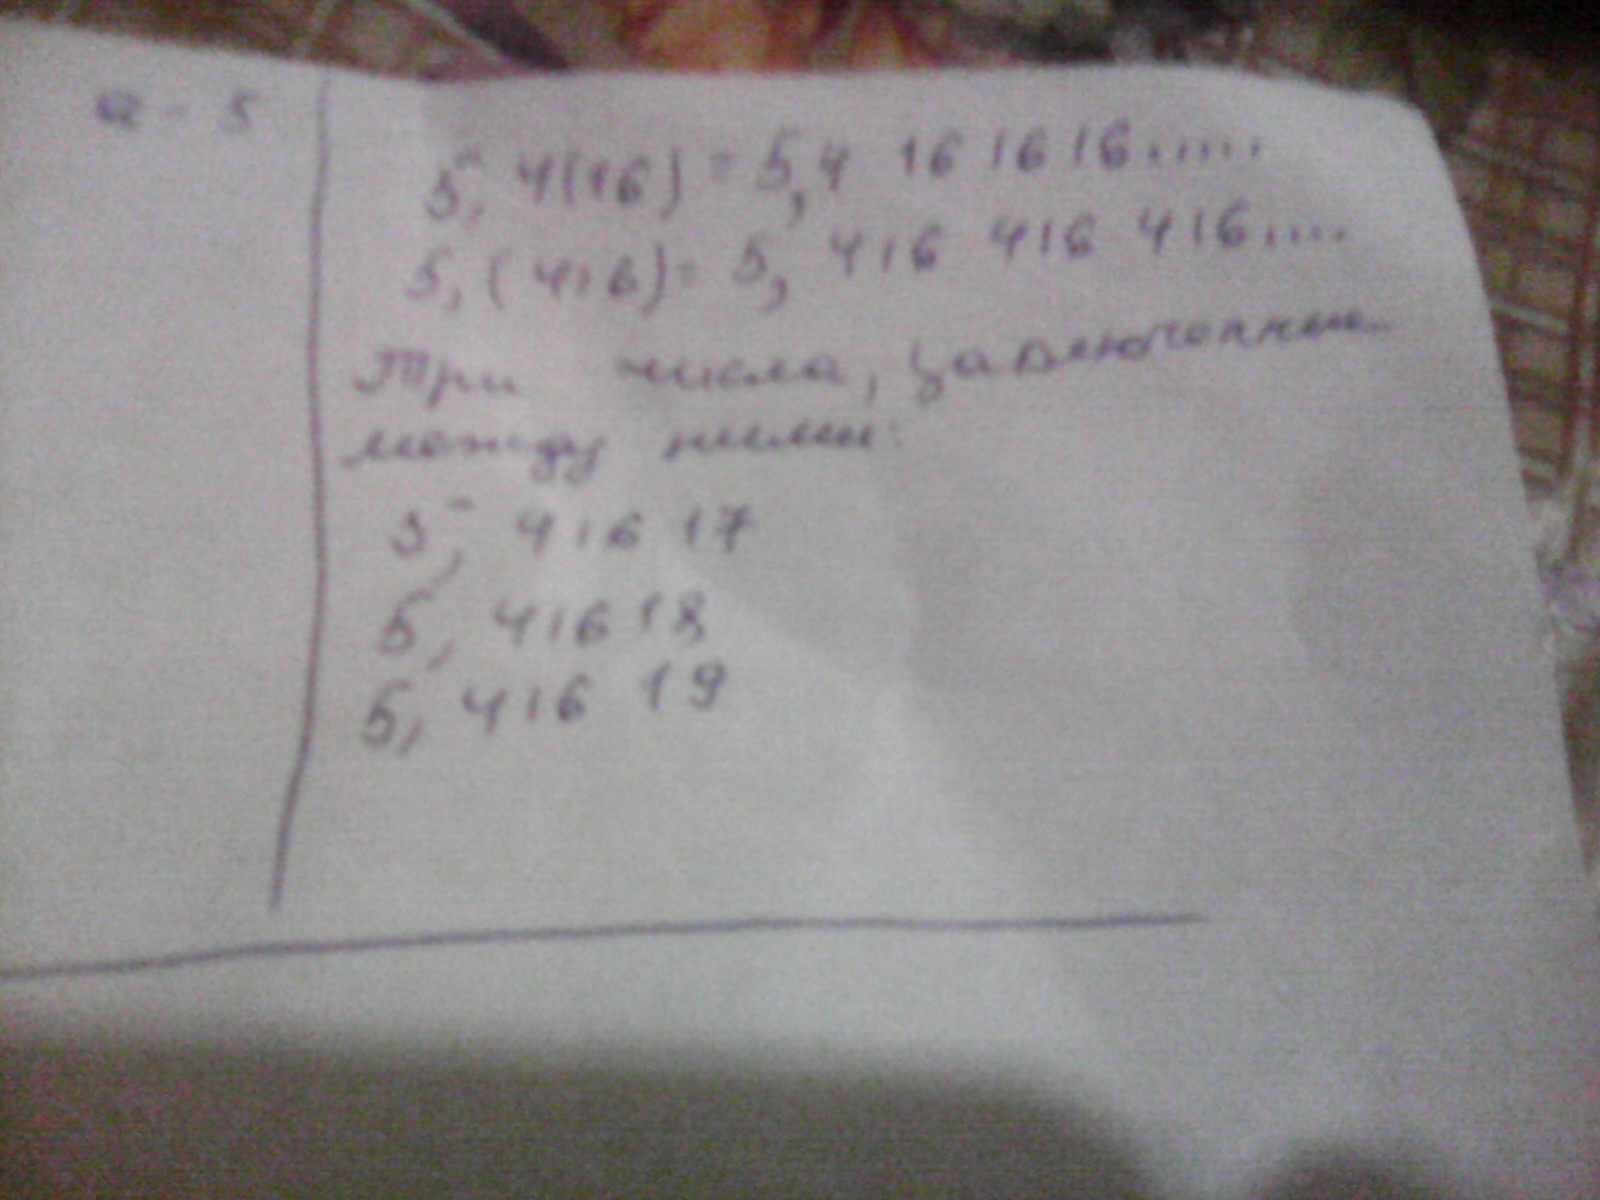 а - 5
5, 4(16) = 5,4 16 16 16.....
5, (416) = 5, 416 416 416....
Три числа, заключенные
между ними:
5, 416 17
5, 416 18
5, 416 19